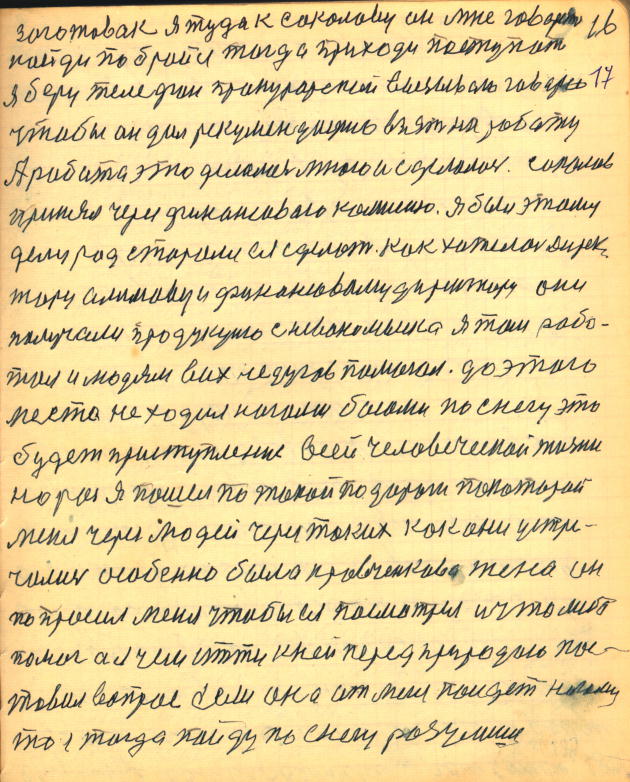 заготовак я туда к соколову он мне говорит 16
пойди побройся тогда приходи поступат
я беру телефон прокурарский вызываю говорю 17
чтобы он дал рекумендацию взять на работу
А работа это делалася много и сделалася. соколов
принял через финансоваго комисию. Я был этому
делу рад старался сделат. как хателося дирек-
тору алимову и финансовому дириктору они
получали продукцию с невономыка я там рабо-
тал и людям в их недугов помогал. до этого
места не ходил ногами босами по снегу это
будет приступление всей человеческай жизни
но раз я пошел по такой подороги покоторой
меня через людей через таких как они устре-
чалися особенно была кравченкова жена он
попросил меня чтобы я посмотрел и что либо
помог а я чем итти кней перед природаю пос-
тавил вопрос если она от меня пойдет ногами
то я тогда пойду по снегу разумши